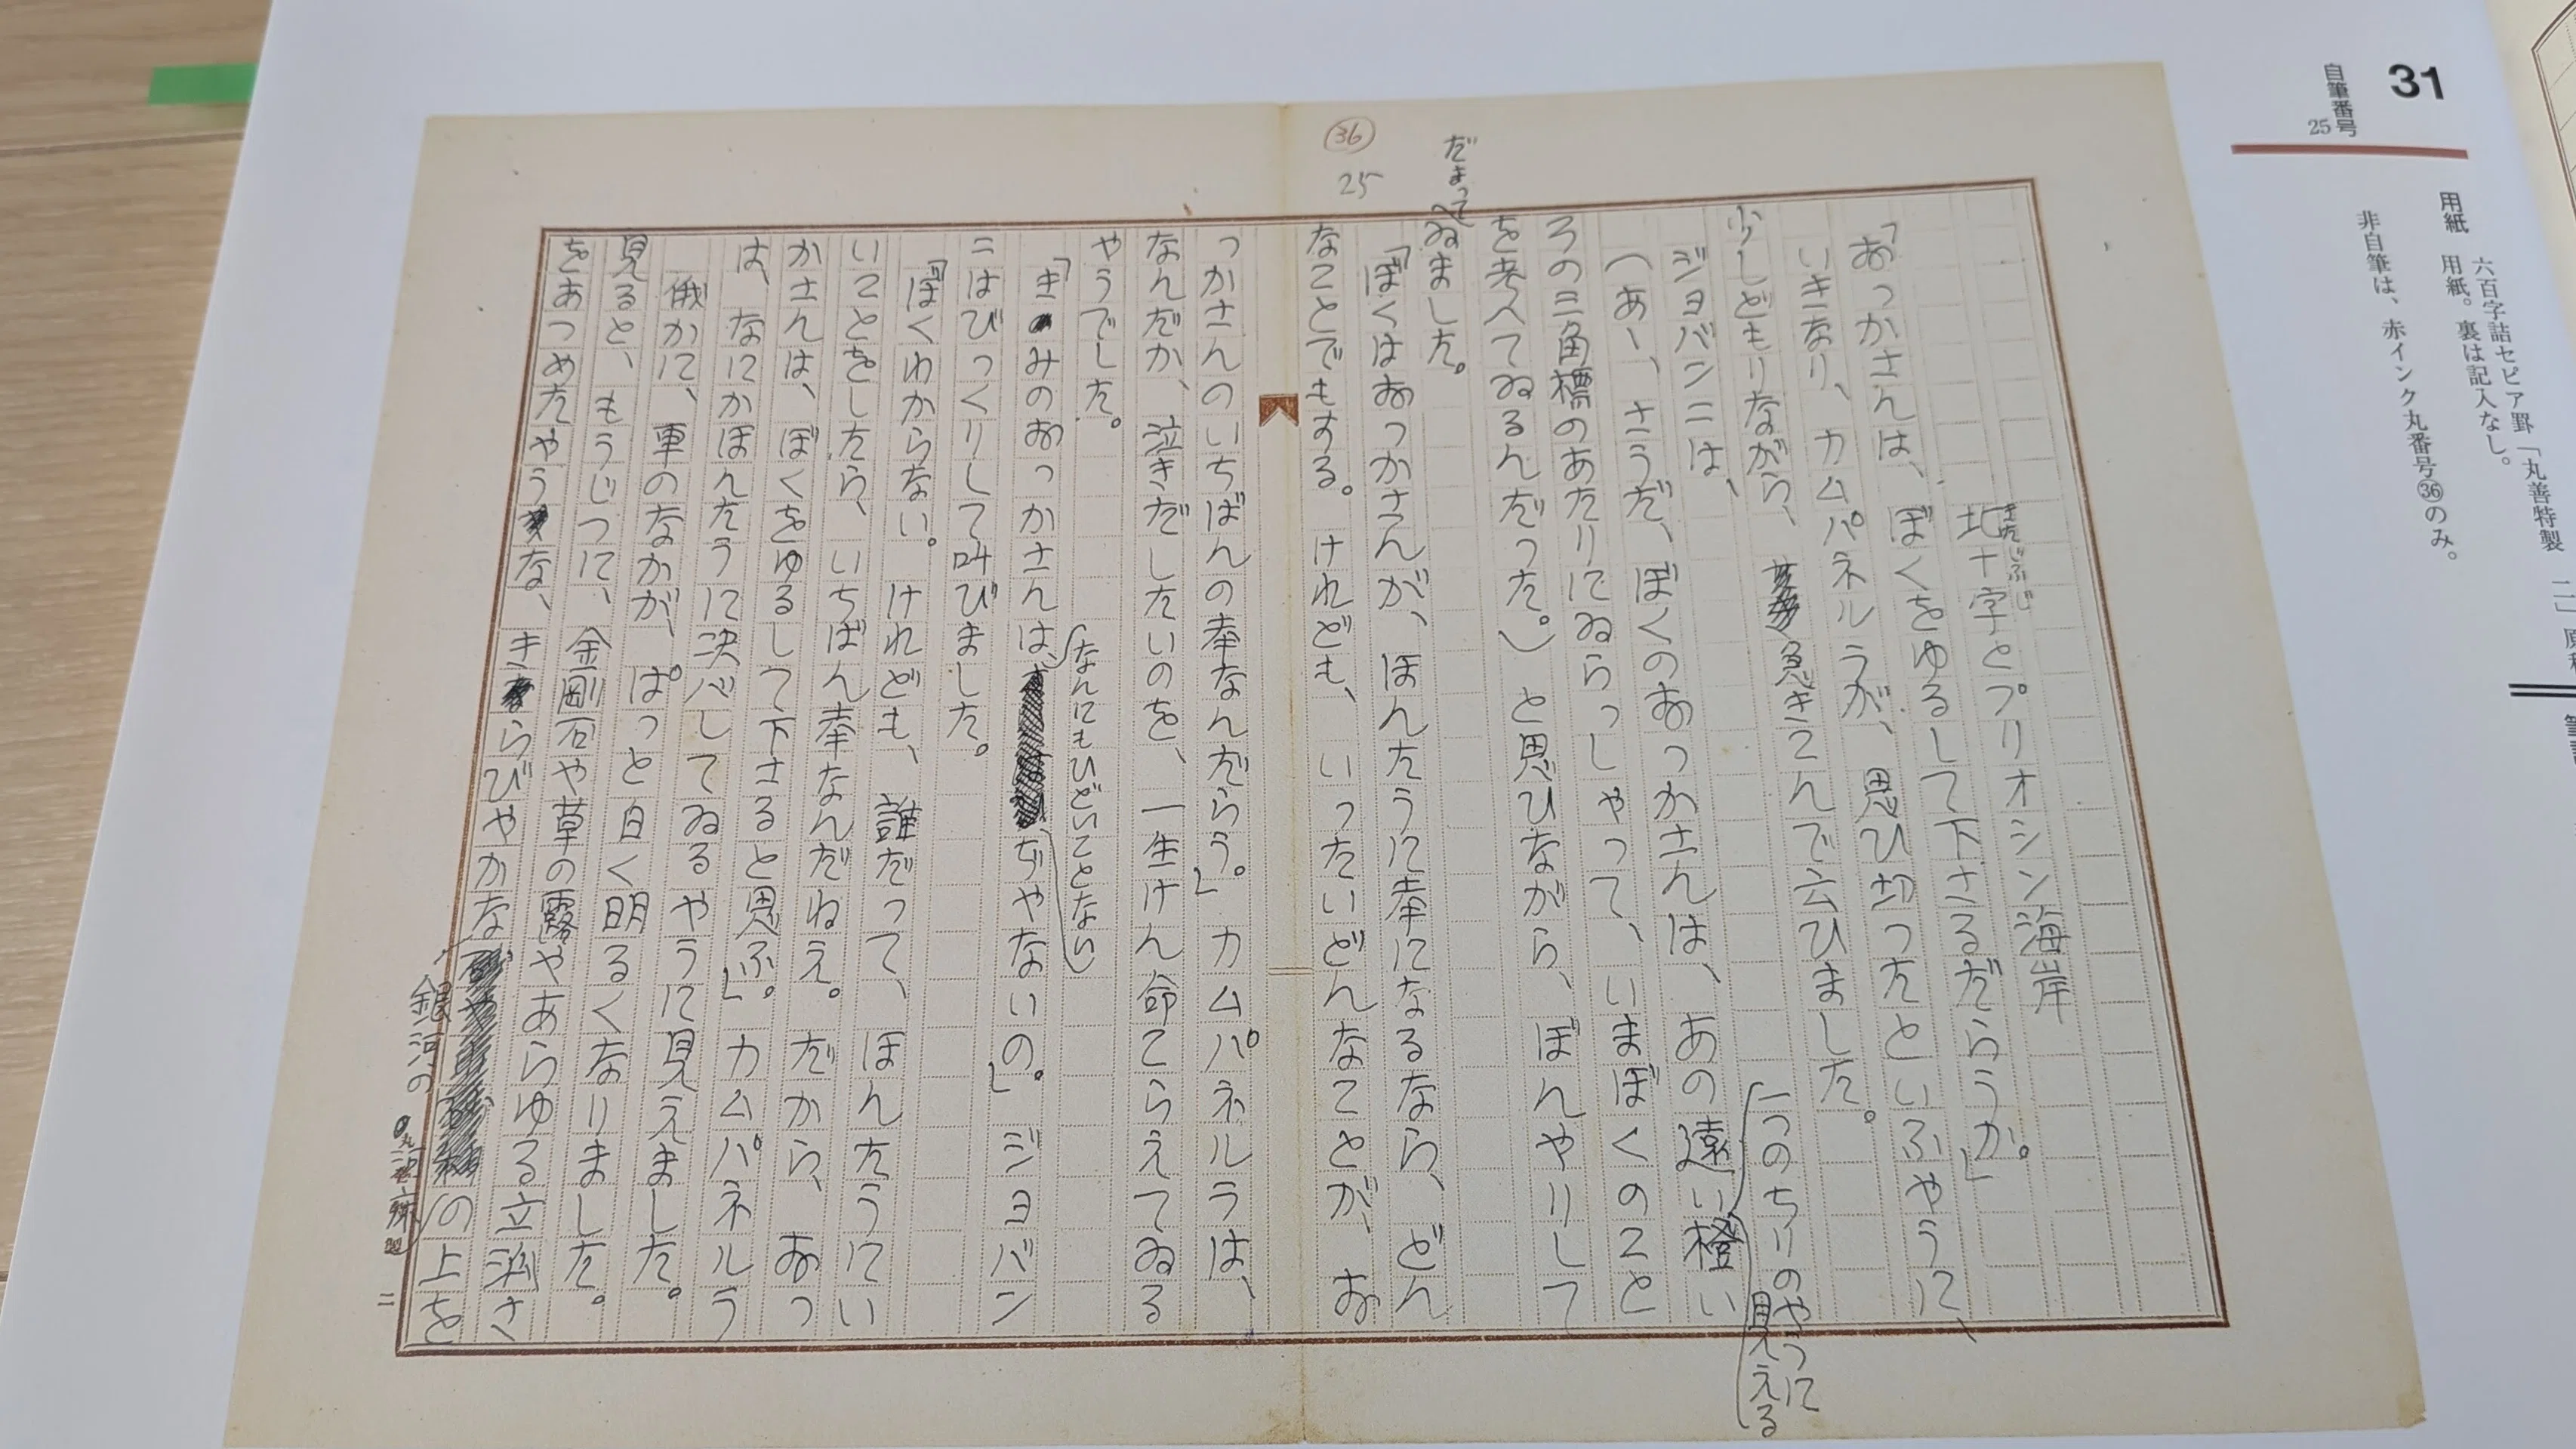 31
自筆番号
25
用紙　六百字詰セピア罫「丸善特製　二」原
用紙。裏は記入なし。
非自筆は、赤インク丸番号㊱のみ。
36
25
きたじふじ
北十字とプリオシン海岸
「おっかさんは、ぼくをゆるして下さるだらうか。」
いきなり、カムパネルラが、思ひ切ったといふやうに、
少しどもりながら、急きこんで云ひました。
ジョバンニは、
一つのちりのやうに
見える
（あゝ、さうだ、ぼくのおっかさんは、あの遠い橙い
ろの三角標のあたりにゐらっしゃって、いまぼくのこと
を考へてゐるんだった。）と思ひながら、ぼんやりして
だまって
ゐました。
「ぼくはおっかさんが、ほんたうに幸になるなら、どん
なことでもする。けれども、いったいどんなことが、お
っかさんのいちばんの幸なんだらう。」カムパネルラは、
なんだか、泣きだしたいのを、一生けん命こらえてゐる
やうでした。
なんにもひどいことない
「きみのおっかさんは、ぢゃないの。」ジョバン
ニはびっくりして叫びました。
「ぼくわからない。けれども、誰だって、ほんたうにい
いことをしたら、いちばん幸なんだねえ。だから、おっ
かさんは、ぼくをゆるして下さると思ふ。」カムパネルラ
は、なにかほんたうに決心してゐるやうに見えました。
俄かに、車のなかが、ぱっと白く明るくなりました。
見ると、もうじつに、金剛石や草の露やあらゆる立派さ
をあつめたやうな、きらびやかなの上を
銀河の
二